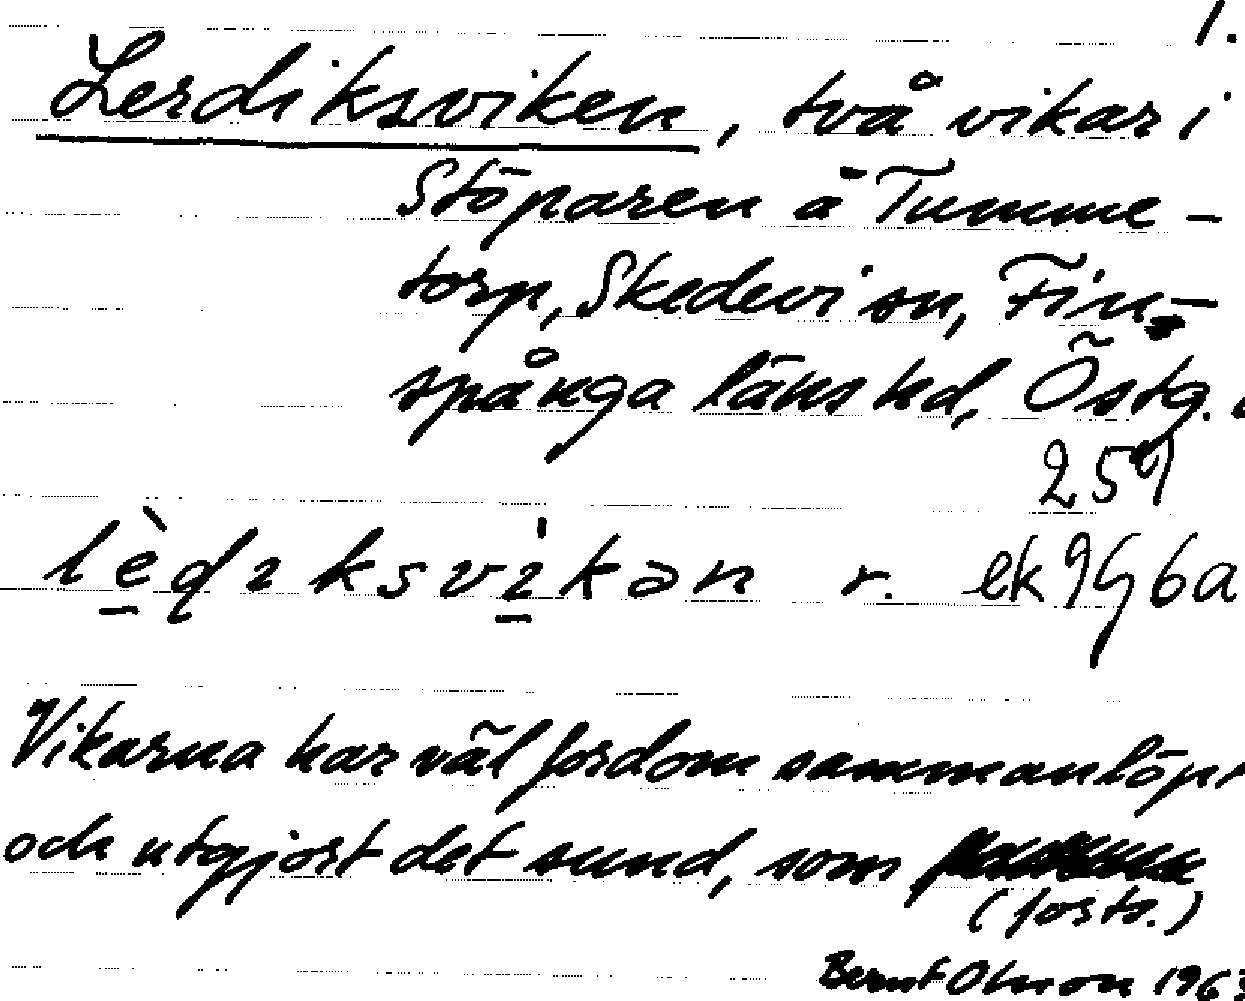 1.
Lerdiksviken, två vikar i
Stöparen å Tumme-
torp, Skedevi sn, Fin-
spånga länshd, Östg.
259
lèdıksvìkən r. ek 9G6a
Vikarna har väl fordom sammanlöpt
och utgjort det sund, som
(forts.)
Bernt Olsson 1963